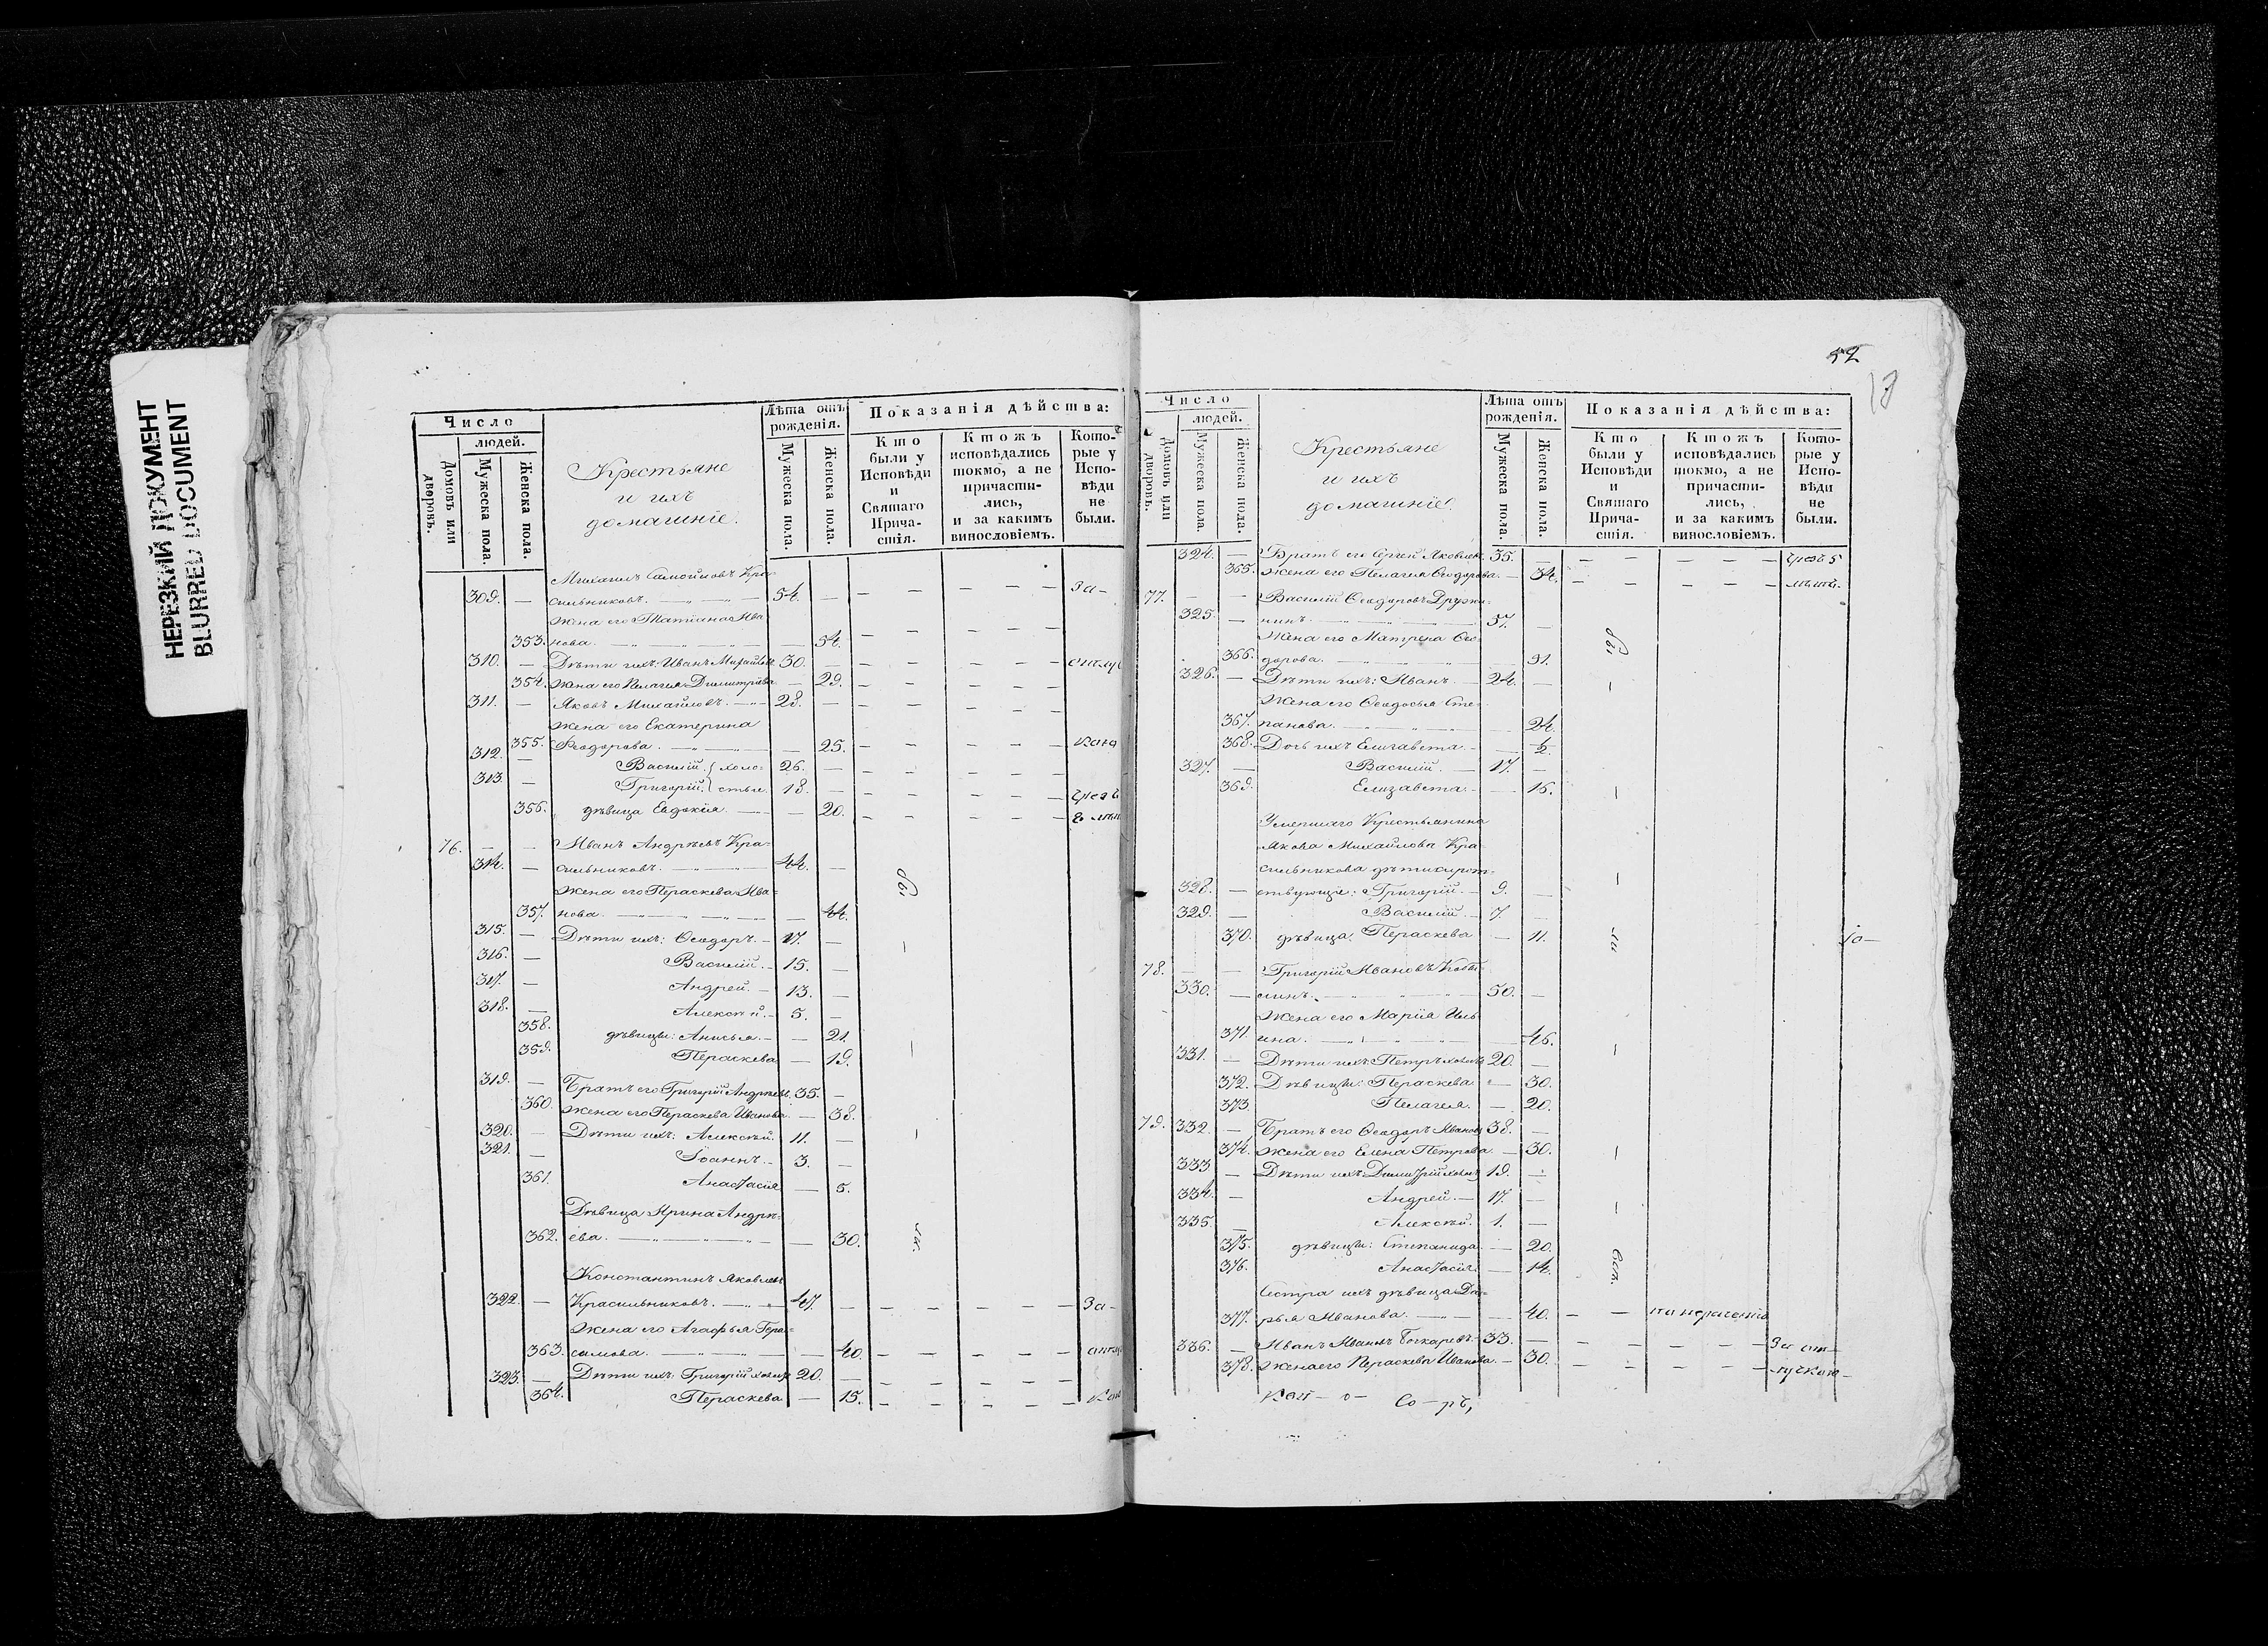 НЕРЕЗКИЙ ДОКУМЕНТ
BLURRED DOCUMENT
Число
людей.
Домовъ или дворовъ.
Мужеска пола.
Женска пола.
Крестьяне
и ихъ
домашніе.
Лѣта отъ
рожденія.
Мужеска пола.
Женска пола.
Показанія дѣйства:
Кто
были у
Исповѣди
и
Святаго
Прича-
стія.
Ктожъ
исповѣдались
токмо, а не
причасти-
лись,
и за какимъ
винословіемъ.
Кото-
рые у
Испо-
вѣди
не
были.
Михаилъ Самойловъ Кра-
309. — сильниковъ. 54. — За-
Жена его Татіана Ива-
353. нова. 54.
310. — Дѣти ихъ: Иванъ Михайловъ 30. —
354. Жена его Пелагея Димитріева — 29.
311. — Яковъ Михайловъ. 28. —
Жена его Екатерина
355. Ѳеодорова. — 25.
312. — Василій. } холо= 26. —
313. — Григорій. } стые. 18. —
356. дѣвица Евдокія. — 20.
76. — — Иванъ Андреевъ Кра=
314. — сильниковъ. 44. — бы
Жена его Параскева Ива=
357. нова. — 44.
315. — Дѣти ихъ: Ѳеодоръ. 17. —
316. — Василій. 15. —
317. — Андрей. 13. —
318. — Алексѣй. 5. —
358. дѣвицы: Анисья. — 21.
359. Пераскева — 19.
319. — Братъ его Григорій Андреевъ 35. —
360. Жена его Пераскева Иванова — 38.
320. — Дѣти ихъ: Алексѣй. 11. —
321. — Іоаннъ. 3. —
361. Анастасія — 5.
Дѣвица Ирина Андрѣ=
362. ева. — 30. ли.
Константинъ Яковлевъ
322. — Красильниковъ. 47. — За-
Жена его Агафья Гера=
363. симова. — 40.
323. — Дѣти ихъ: Григорій холост 20. —
364. Пераскева — 15.
52
Число
людей.
Домовъ или дворовъ.
Мужеска пола.
Женска пола.
Крестьяне
и ихъ
домашніе.
Лѣта отъ
рожденія.
Мужеска пола.
Женска пола.
Показанія дѣйства:
Кто
были у
Исповѣди
и
Святаго
Прича-
стія.
Ктожъ
исповѣдались
токмо, а не
причасти-
лись,
и за какимъ
винословіемъ.
Кото-
рые у
Испо-
вѣди
не
были.
324. — Братъ его Сергей Яковлевъ 35. — чрезъ 5
365. Жена его Пелагея Ѳеодорова. — 34. лѣтъ.
77. — — Василій Ѳеодоровъ Дружи=
325. — нинъ. 57. —
Жена его Матрена Ѳео- бы
366. дорова. — 51.
326. — Дѣти ихъ: Иванъ. 24. —
Жена его Ѳеодосья Сте-
367. панова. — 24.
368. Дочь ихъ Елизавета. — ½.
327. — Василій. 17. —
369. Елизавета. — 15.
Умершаго Крестьянина
Якова Михайлова Кра=
сильникова дѣти сирот=
328. — ствующіе: Григорій. 9. —
329. — Василій. 7. —
370. дѣвица Пераскева — 11. ли
78. — — Григорій Ивановъ
330. — 50. —
Жена его Марія Иль
371. ина. — 46.
331. — Дѣти ихъ: Петръ холостъ 20. —
372. Дѣвицы: Пераскева — 30.
373. Пелагея. — 20.
79. 332. — Братъ его Ѳеодоръ Ивановъ 38. —
374. Жена его Елена Петрова. — 30.
333. — Дѣти ихъ: Димитрій холостъ 19. —
334. — Андрей. 17. —
335. — Алексѣй. 1. —
375. дѣвицы: Степанида — 20. всѣ.
376. Анастасія — 14.
Сестра ихъ дѣвица Да=
377. рья Иванова. — 40. по нераченію
336. — Иванъ Ивановъ Бочкаревъ. 33. — За от-
378. Жена его Пераскева Иванова. — 30. лучкою